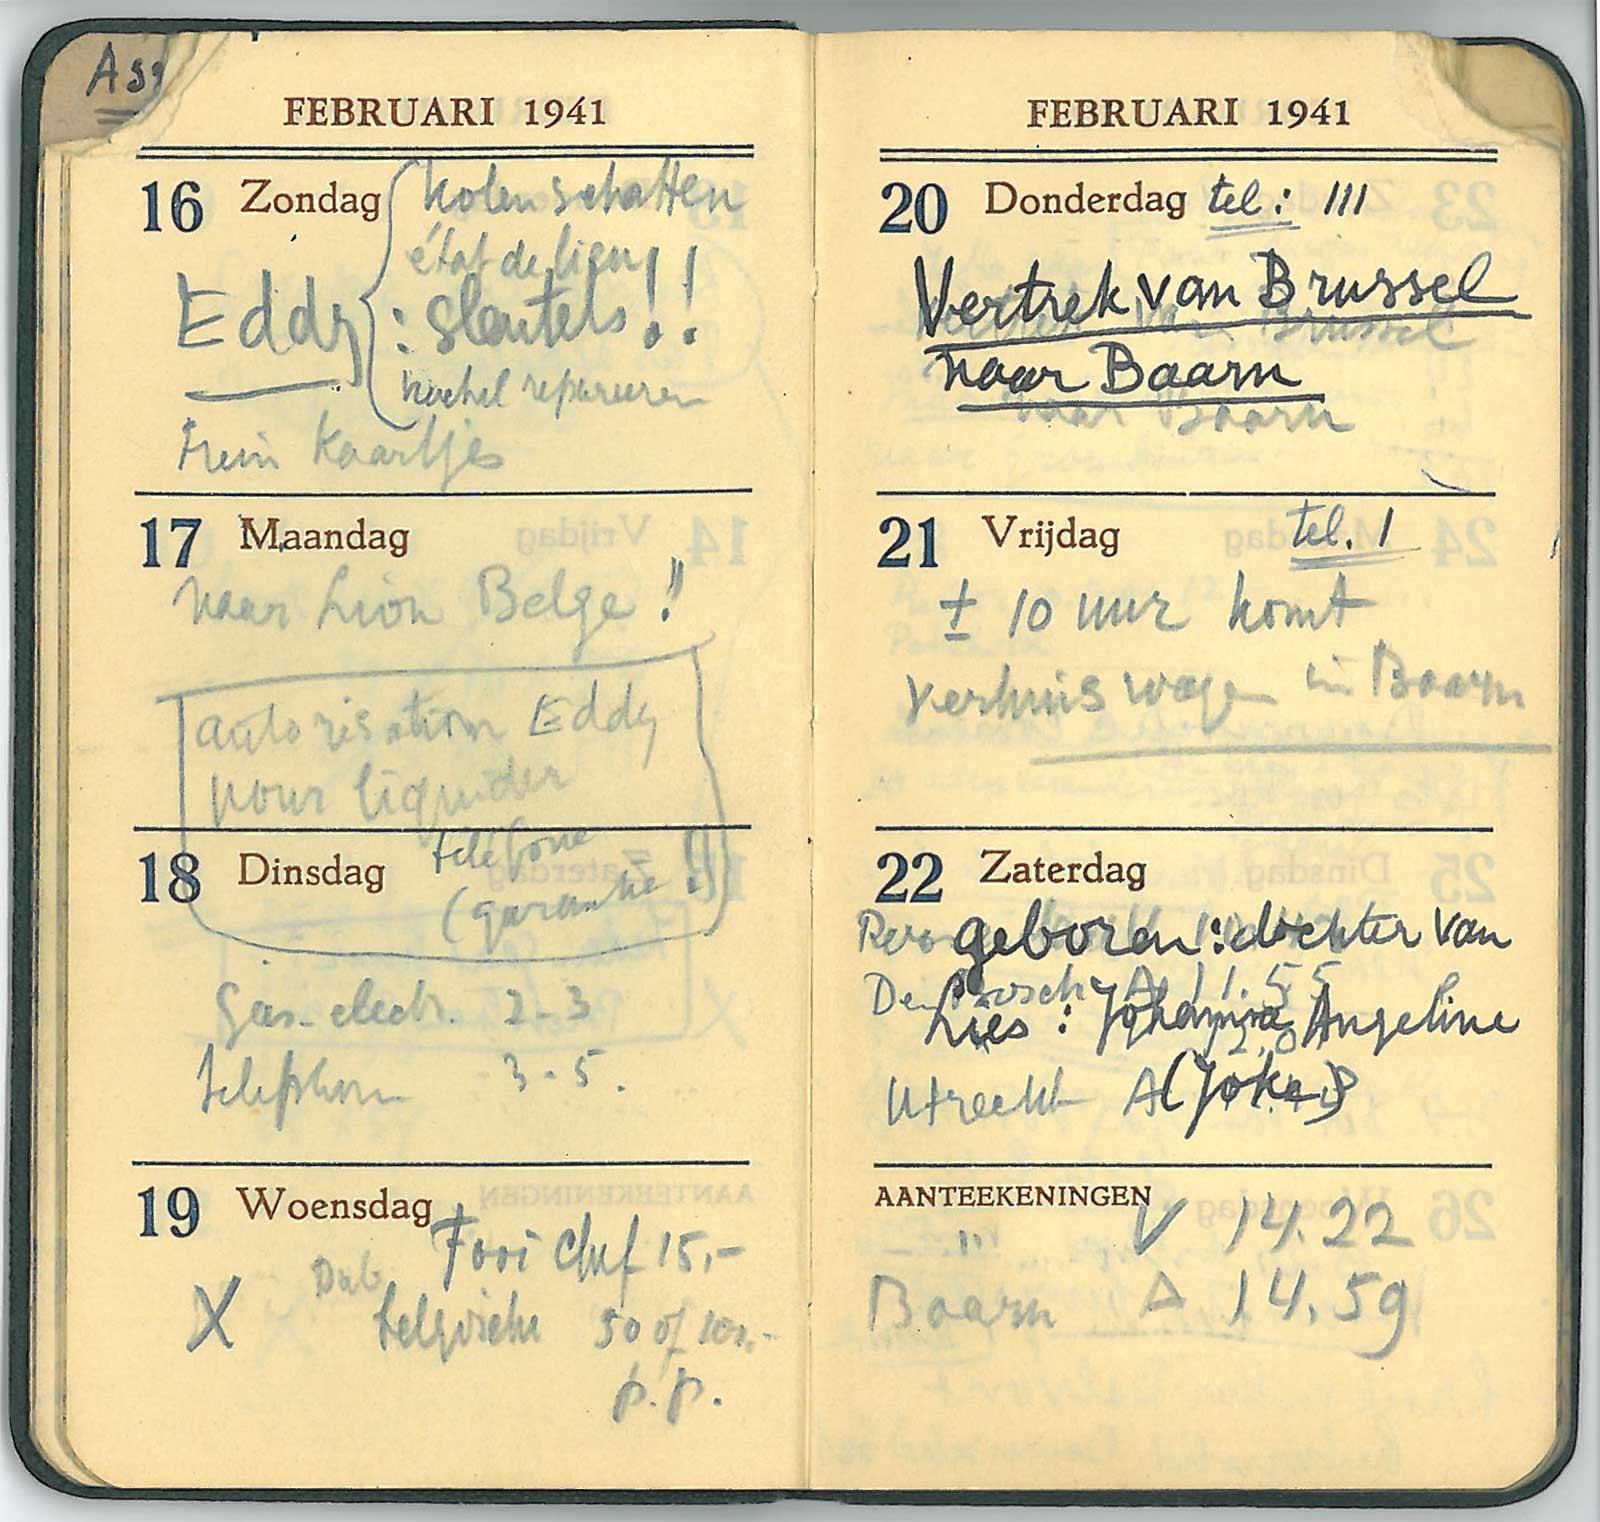 FEBRUARI 1941
16 Zondag
kolen schatten
état de lieu
Eddy : sleutels !!
kachel repareren
trein kaartjes
17 Maandag
naar Lion Belge !!
autorisation Eddy
pour liquider
18 Dinsdag telefone
(garantie !
Gas-electr. 2-3
telephon 3-5.
19 Woensdag
Fooi chef 15,-
X 50 of 100.-
p.p.
FEBRUARI 1941
20 Donderdag tel: 111
Vertrek van Brussel
naar Baarn
21 Vrijdag tel. 1
± 10 uur komt
verhuiswagen in Baarn
22 Zaterdag
geboren: dochter van
Den Bosch A 11.55
Lies: Johanna Angeline
Utrecht A (Joke)
AANTEEKENINGEN V 14.22
Baarn A 14.59